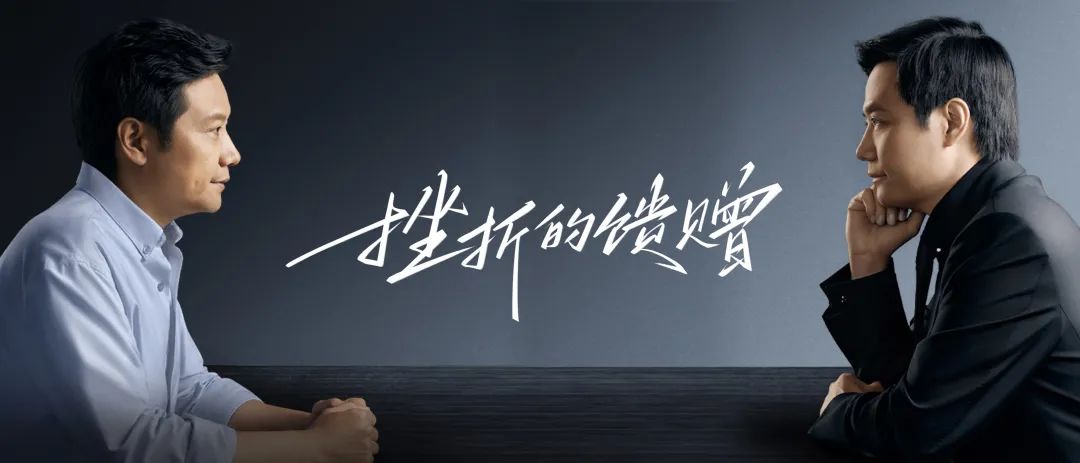 挫折的馈赠